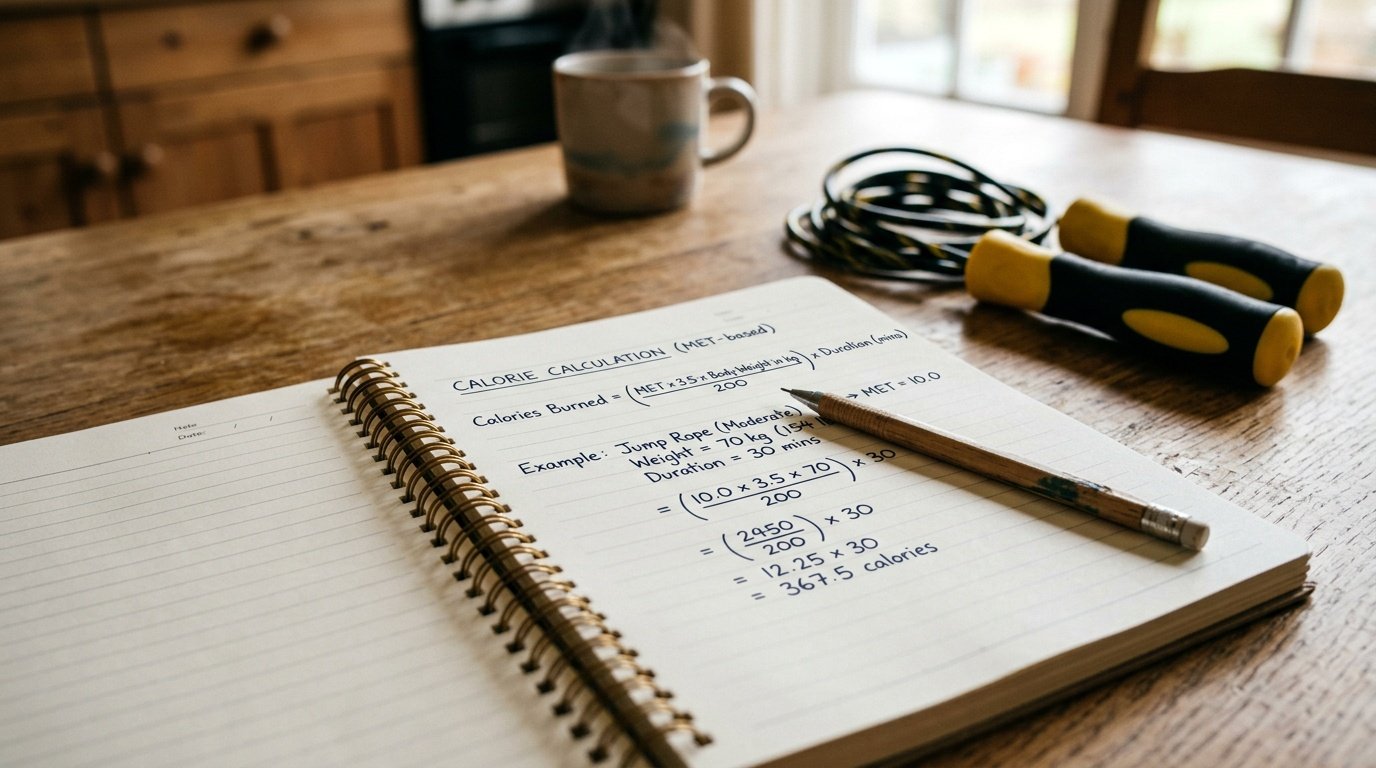 CALORIE CALCULATION (MET-based)
Calories Burned = (MET x 3.5 x Body Weight in kg / 200) x Duration (mins)
Example: Jump Rope (Moderate) → MET = 10.0
Weight = 70 kg (154
Duration = 30 mins
= (10.0 x 3.5 x 70 / 200) x 30
= (2450 / 200) x 30
= 12.25 x 30
= 367.5 calories
Date: / /